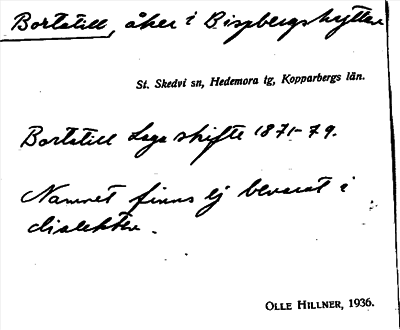 Bortstill, åker i Bispbergshyttan
St. Skedvi sn, Hedemora tg, Kopparbergs län.
Bortstill Laga skifte 1871-79.
Namnet finns ej bevarat i
dialekten.
OLLE HILLNER, 1936.